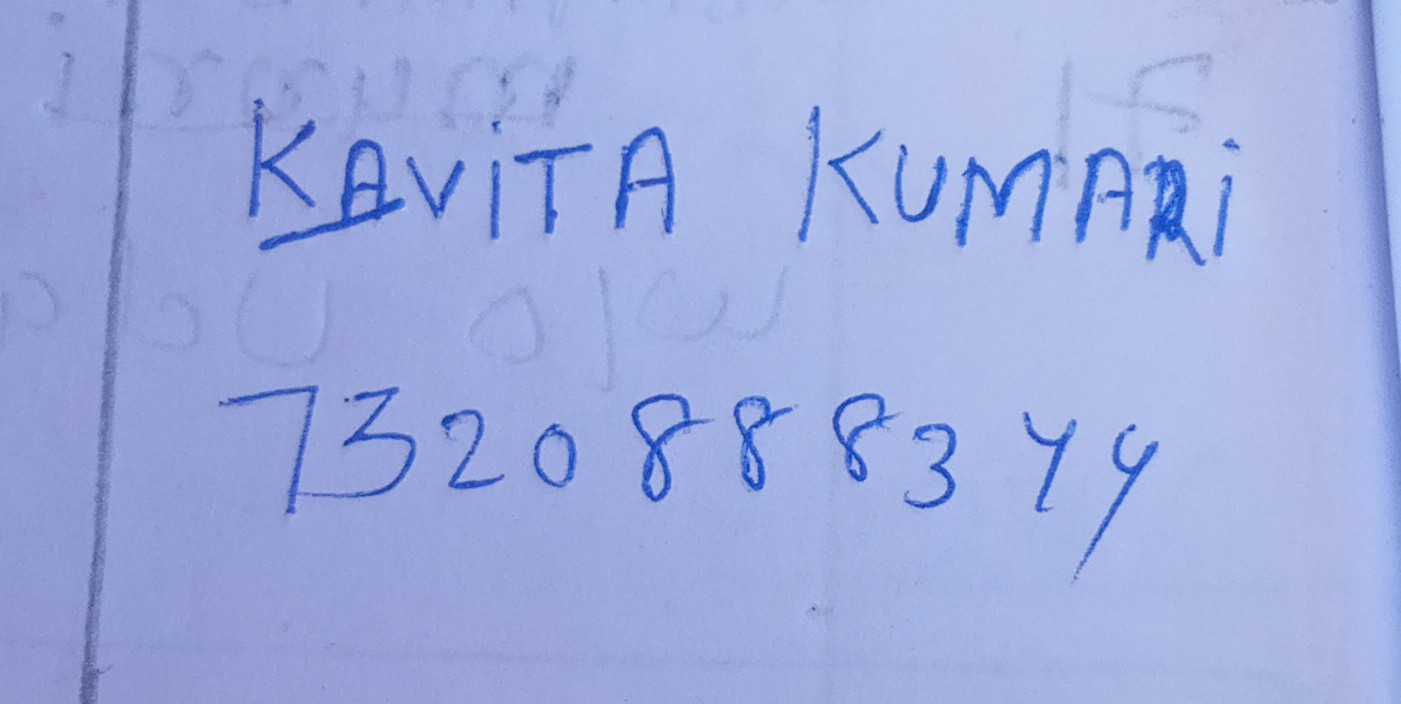 KAVITA KUMARI
7320888344